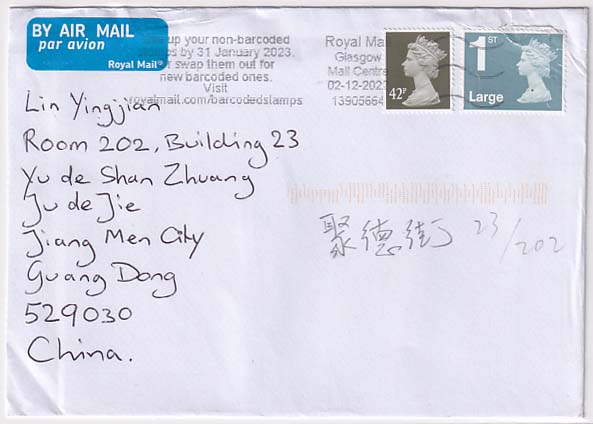 BY AIR MAIL
par avion
Royal Mail®
up your non-barcoded
by 31 January 2023.
swap them out for
new barcoded ones.
Visit
royalmail.com/barcodedstamps
Royal Mail
Glasgow
Mail Centre
02-12-202
13905664
42P
1ST
Large
Lin Yingjian
Room 202, Building 23
Yu de Shan Zhuang
Ju de Jie
Jiang Men City
Guang Dong
529030
China.
聚德街 23/202